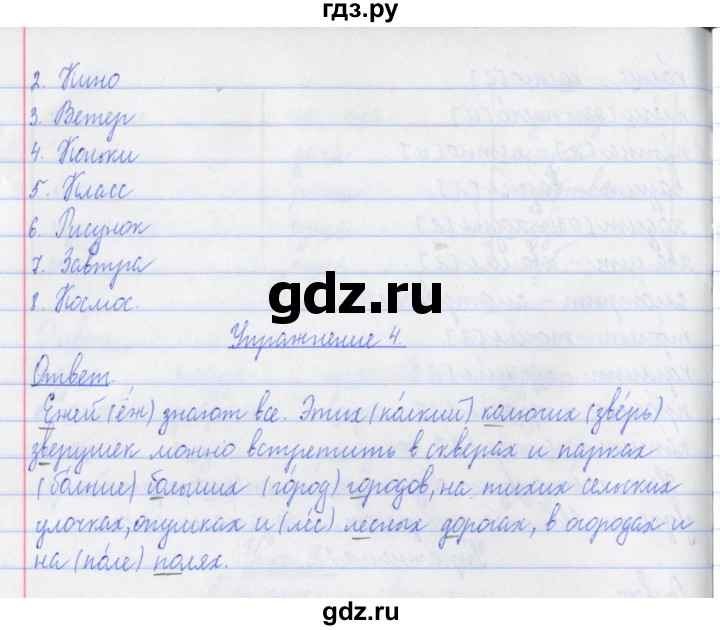 гдз.ру
2. Кино
3. Ветер
4. Коньки
5. Класс
6. Рисунок
7. Завтра
8. Космос.
gdz.ru
Упражнение 4.
Ответ.
Ежей (ёж) знают все. Этих (ко́лкий) колючих (зве́рь)
зверушек можно встретить в скверах и парках
(бо́льше) больших (го́род) городов, на тихих сельских
улочках, опушках и (ле́с) лесных дорогах, в огородах и
на (по́ле) полях.
gdz.ru